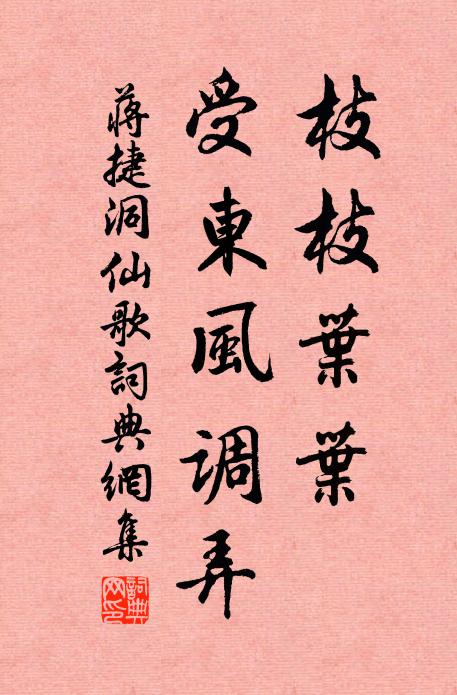 枝枝葉葉
受東風調弄
蔣捷洞仙歌詞典網集
詞典網印